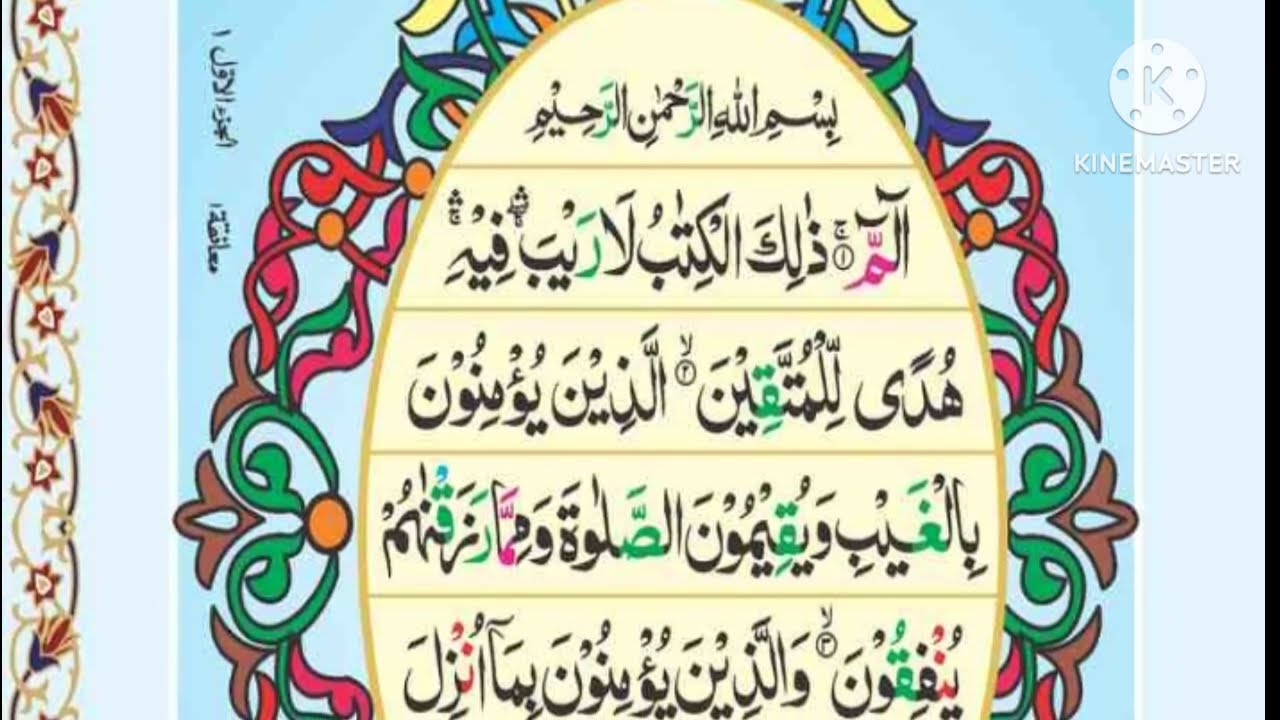 بِسْمِ اللهِ الرَّحْمٰنِ الرَّحِيْمِ
الٓمّٓ ۚ﴿۱﴾ ذٰلِكَ الْكِتٰبُ لَا رَيْبَ ۛۖ فِيْهِ ۛۚ
هُدًى لِّلْمُتَّقِيْنَ ۙ﴿۲﴾ الَّذِيْنَ يُؤْمِنُوْنَ
بِالْغَيْبِ وَيُقِيْمُوْنَ الصَّلٰوةَ وَمِمَّا رَزَقْنٰهُمْ
يُنْفِقُوْنَ ۙ﴿۳﴾ وَالَّذِيْنَ يُؤْمِنُوْنَ بِمَآ اُنْزِلَ
الجزء الاوّل ۱
معانقة ۱
K
KINEMASTER